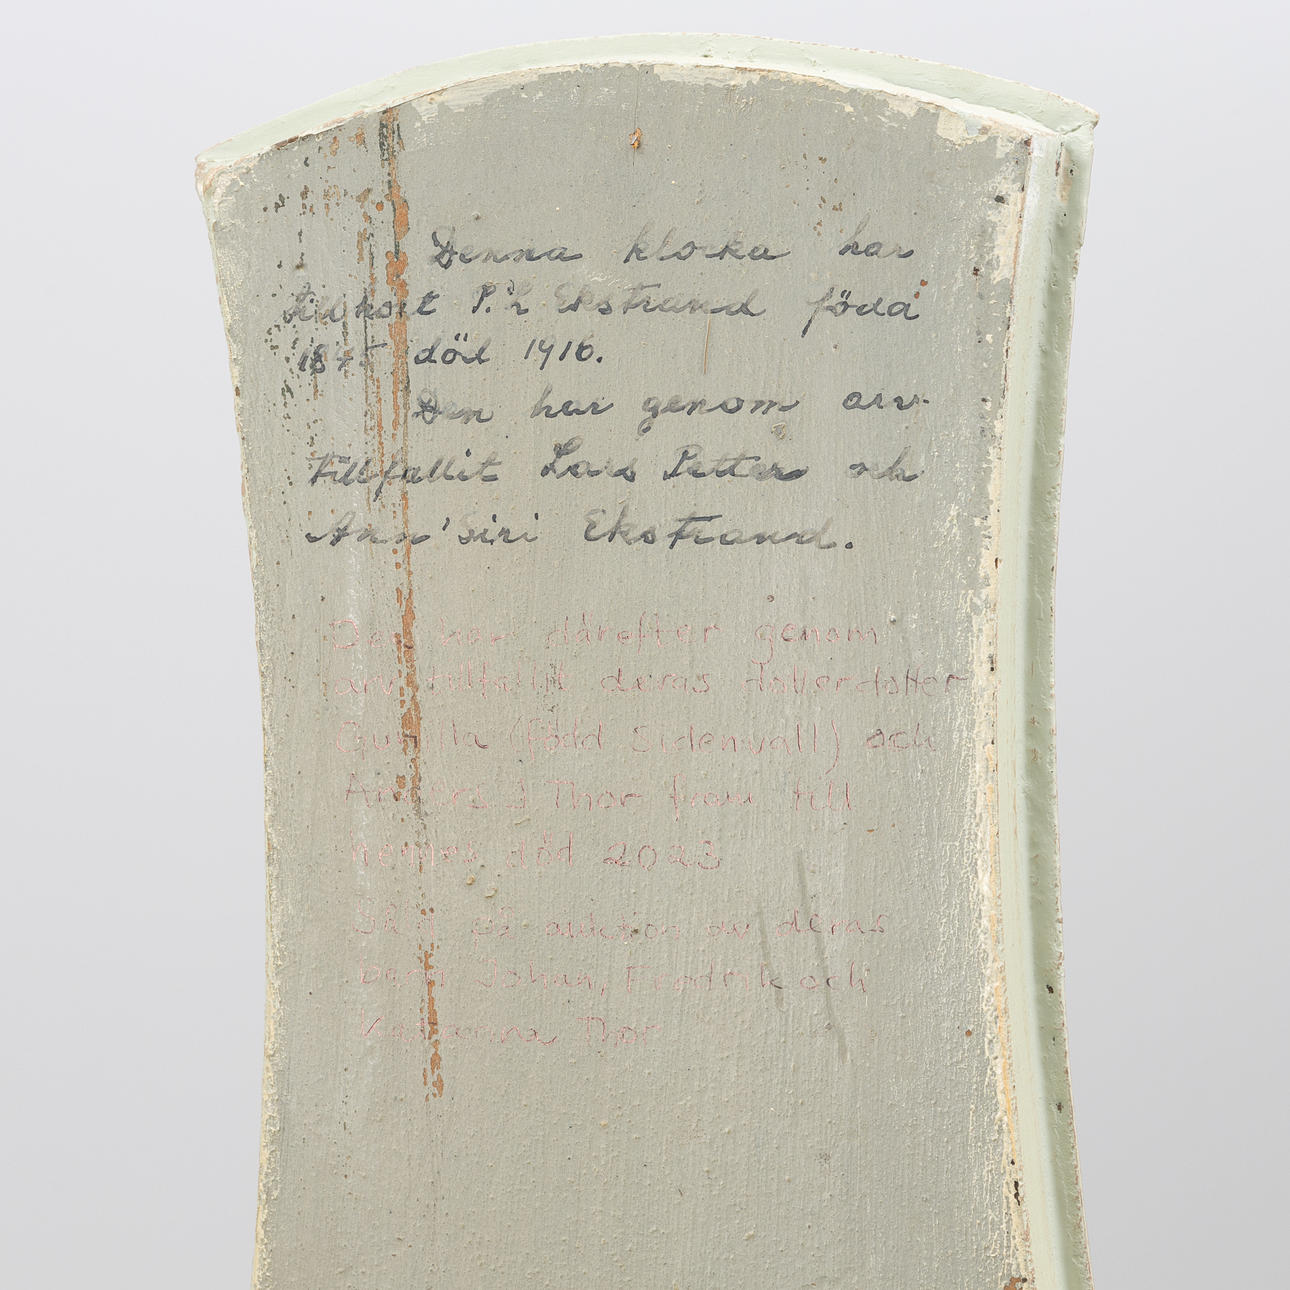 Denna klocka har
tillhört P.L Ekstrand född
1845 död 1916.
Den har genom arv
tillfallit Lars Petter och
Ann'Siri Ekstrand.
Den har därefter genom
arv tillfallit deras dotterdotter
Gunilla (född Sidenvall) och
Anders J Thor fram till
hennes död 2023
Såld på auktion av deras
barn Johan, Fredrik och
Katharina Thor